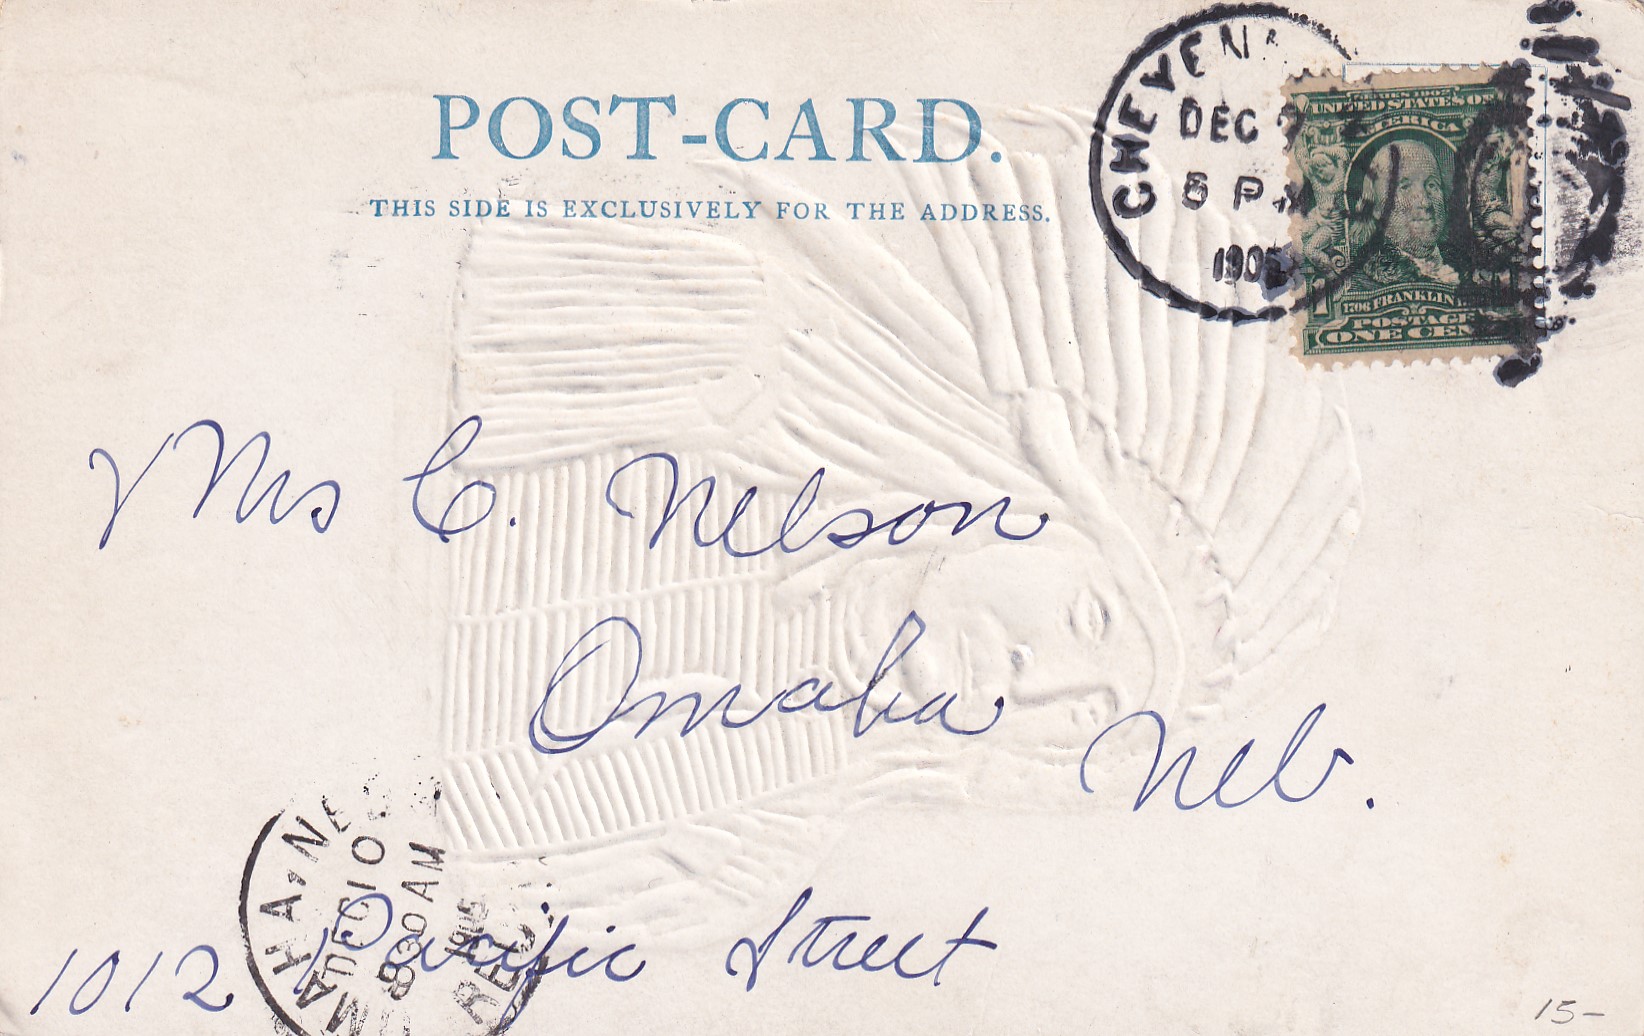 POST-CARD.
THIS SIDE IS EXCLUSIVELY FOR THE ADDRESS.
CHEYEN
DEC
PM
190
SERIES 1902
UNITED STATES OF
AMERICA
1706 FRANKLIN
POSTAGE
1 ONE CEN
Mrs C. Nelson
Omaha
Neb.
1012 Pacific Street
MAHA, NE
DEC 10
830 AM
REC'D
15-